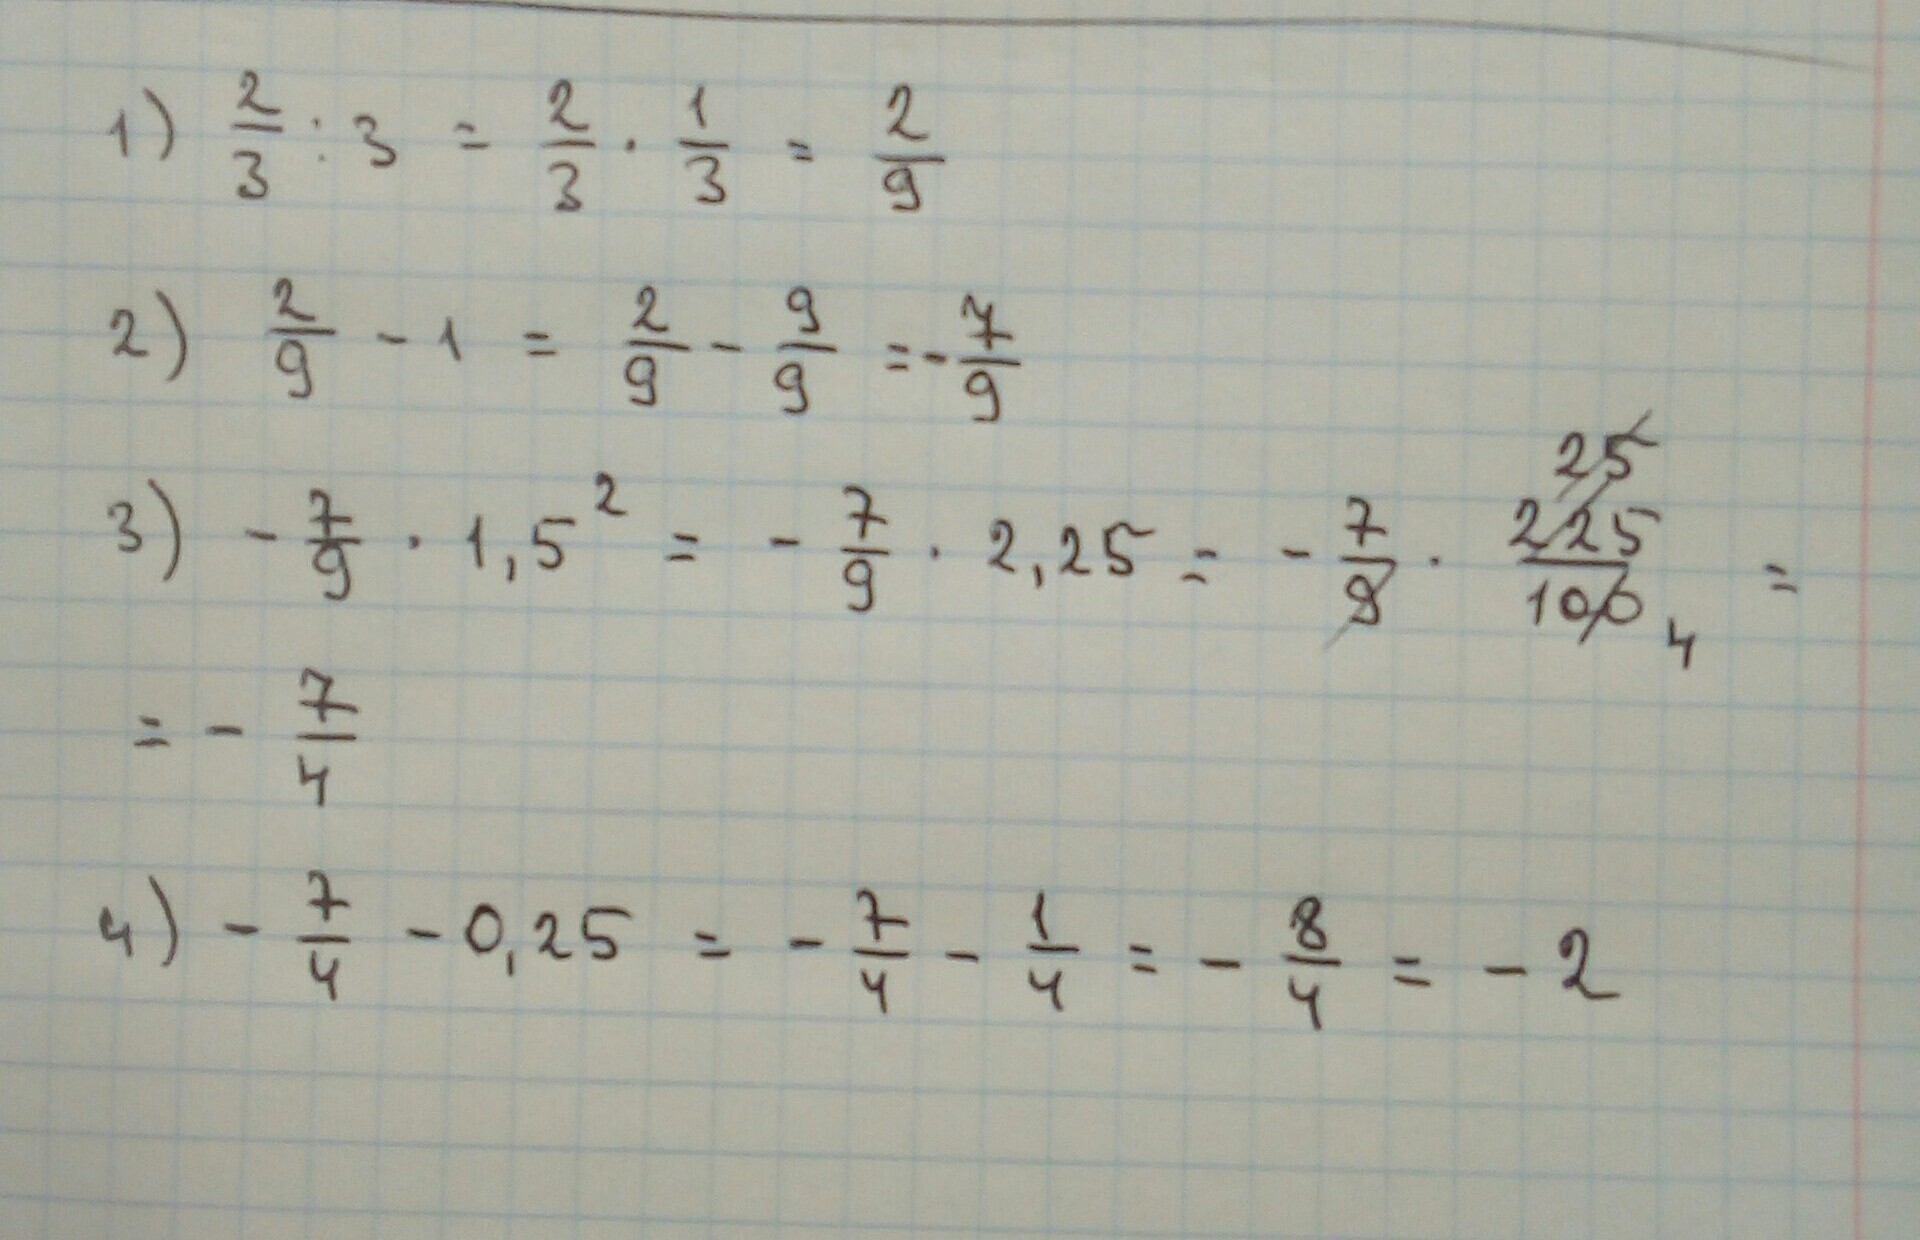 1) 2/3 : 3 = 2/3 · 1/3 = 2/9
2) 2/9 - 1 = 2/9 - 9/9 = - 7/9
3) - 7/9 · 1,5² = - 7/9 · 2,25 = - 7/9 · 225/100 25 4 =
= - 7/4
4) - 7/4 - 0,25 = - 7/4 - 1/4 = - 8/4 = - 2